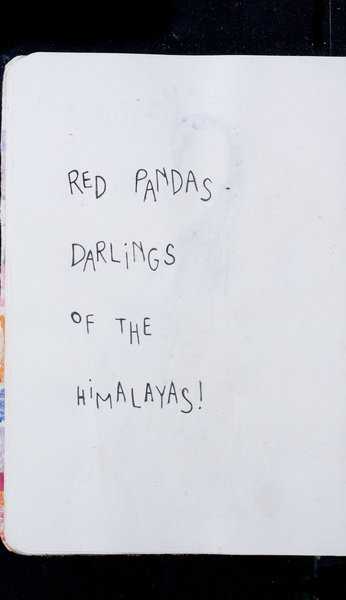 RED PANDAS.
DARLiNGS
OF THE
HiMALAYAS!